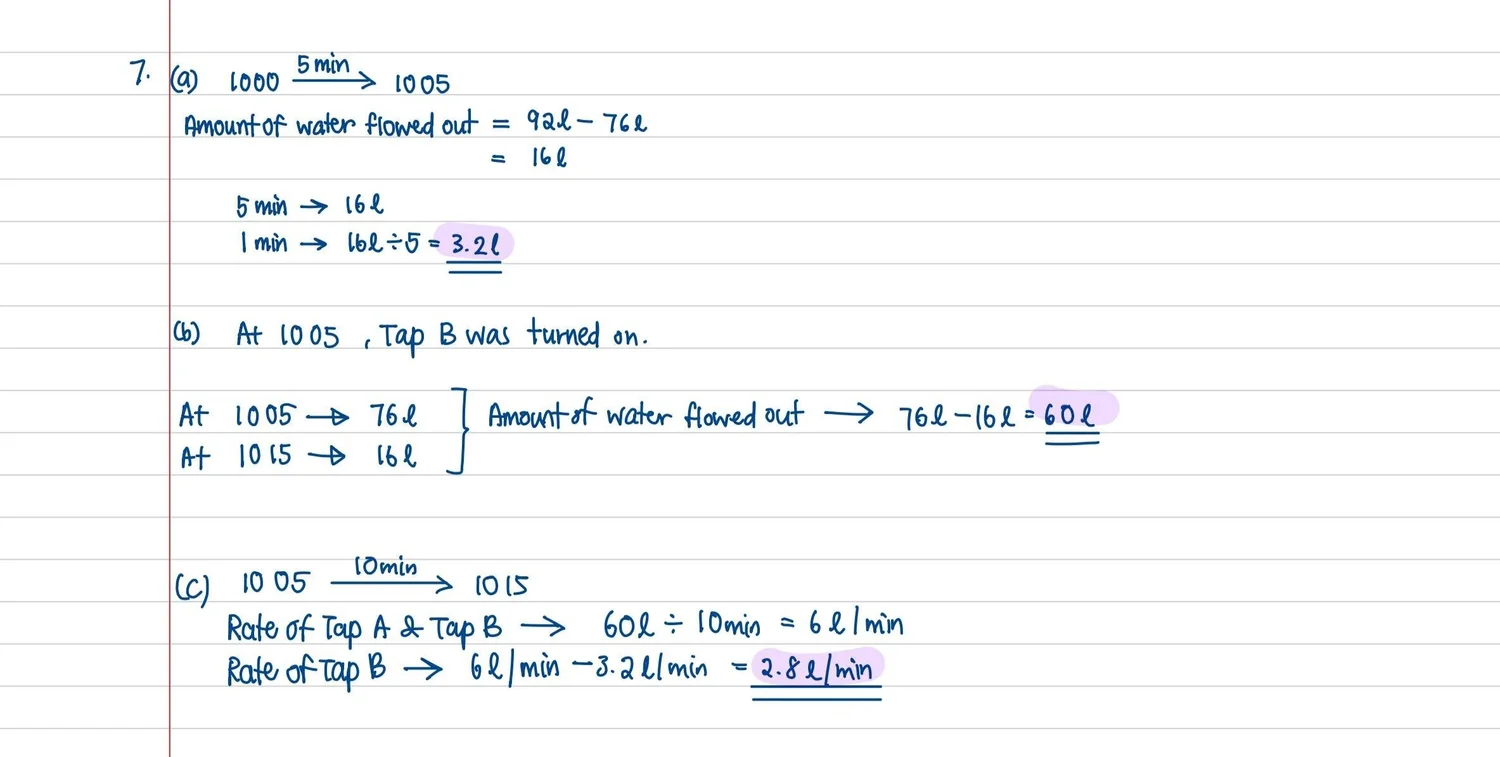 7. (a) 1000 5 min → 1005
Amount of water flowed out = 92l - 76l
= 16l
5 min → 16l
1 min → 16l ÷ 5 = 3.2l
(b) At 1005, Tap B was turned on.
At 1005 → 76l ] Amount of water flowed out → 76l - 16l = 60l
At 1015 → 16l
(c) 1005 10min → 1015
Rate of Tap A & Tap B → 60l ÷ 10min = 6l/min
Rate of Tap B → 6l/min - 3.2l/min = 2.8l/min